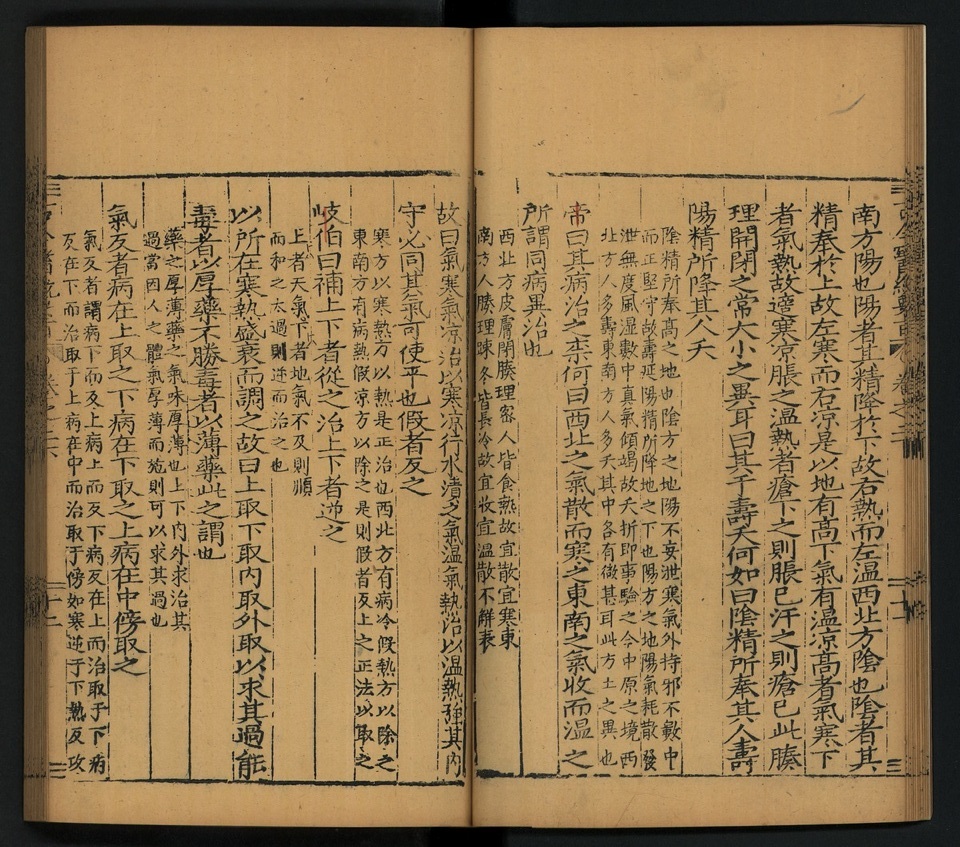 南方陽也陽者其精降於下故右熱而左温西北方陰也陰者其
精奉於上故左寒而右凉是以地有高下氣有温凉高者氣寒下
者氣熱故適寒凉脹之温熱者瘡下之則脹已汗之則瘡已此腠
理開閉之常大小之異耳曰其于壽夭何如曰陰精所奉其人壽
陽精所降其人夭
陰精所奉高之地也陰方之地陽不妄泄寒氣外持邪不數中
而正堅守故壽延陽精所降地之下也陽方之地陽氣耗散發
泄無度風湿數中真氣傾竭故夭折即事驗之今中原之境西
北方人多壽東南方人多夭其中各有微甚耳此方土之異也
帝曰其病治之柰何曰西北之氣散而寒之東南之氣收而温之
所謂同病異治也
西北方皮膚閉腠理密人皆食熱故宜散宜寒東
南方人腠理踈冬皆長冷故宜收宜温散不觧表
故曰氣寒氣凉治以寒凉行水漬之氣温氣熱治以温熱强其内
守必同其氣可使平也假者反之
寒方以寒熱方以熱是正治也西北方有病冷假熱方以除之
東南方有病熱假凉方以除之是則假者反上之正法以取之
岐伯曰補上下者從之治上下者逆之
上者天氣下者地氣不及則順
而和之太過則逆而治之也
以所在寒熱盛衰而調之故曰上取下取内取外取以求其過能
毒者以厚藥不勝毒者以薄藥此之謂也
藥之厚薄藥之氣味厚薄也上下内外求治其
過當因人之體氣厚薄而施則可以求其過也
氣反者病在上取之下病在下取之上病在中傍取之
氣反者謂病下而反上病上而反下病反在上而治取于下病
反在下而治取于上病在中而治取于傍如寒逆于下熱反攻
卷之六
十二